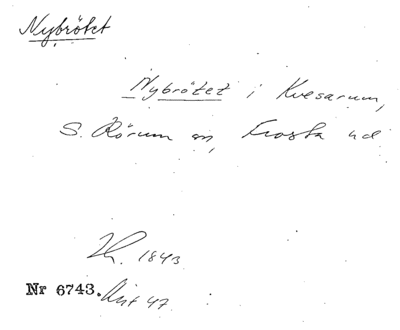 Nybrötet
Nybrötet i Kvesarum,
S. Rörum sn, Frosta hd
1843
Nr 6743. 47